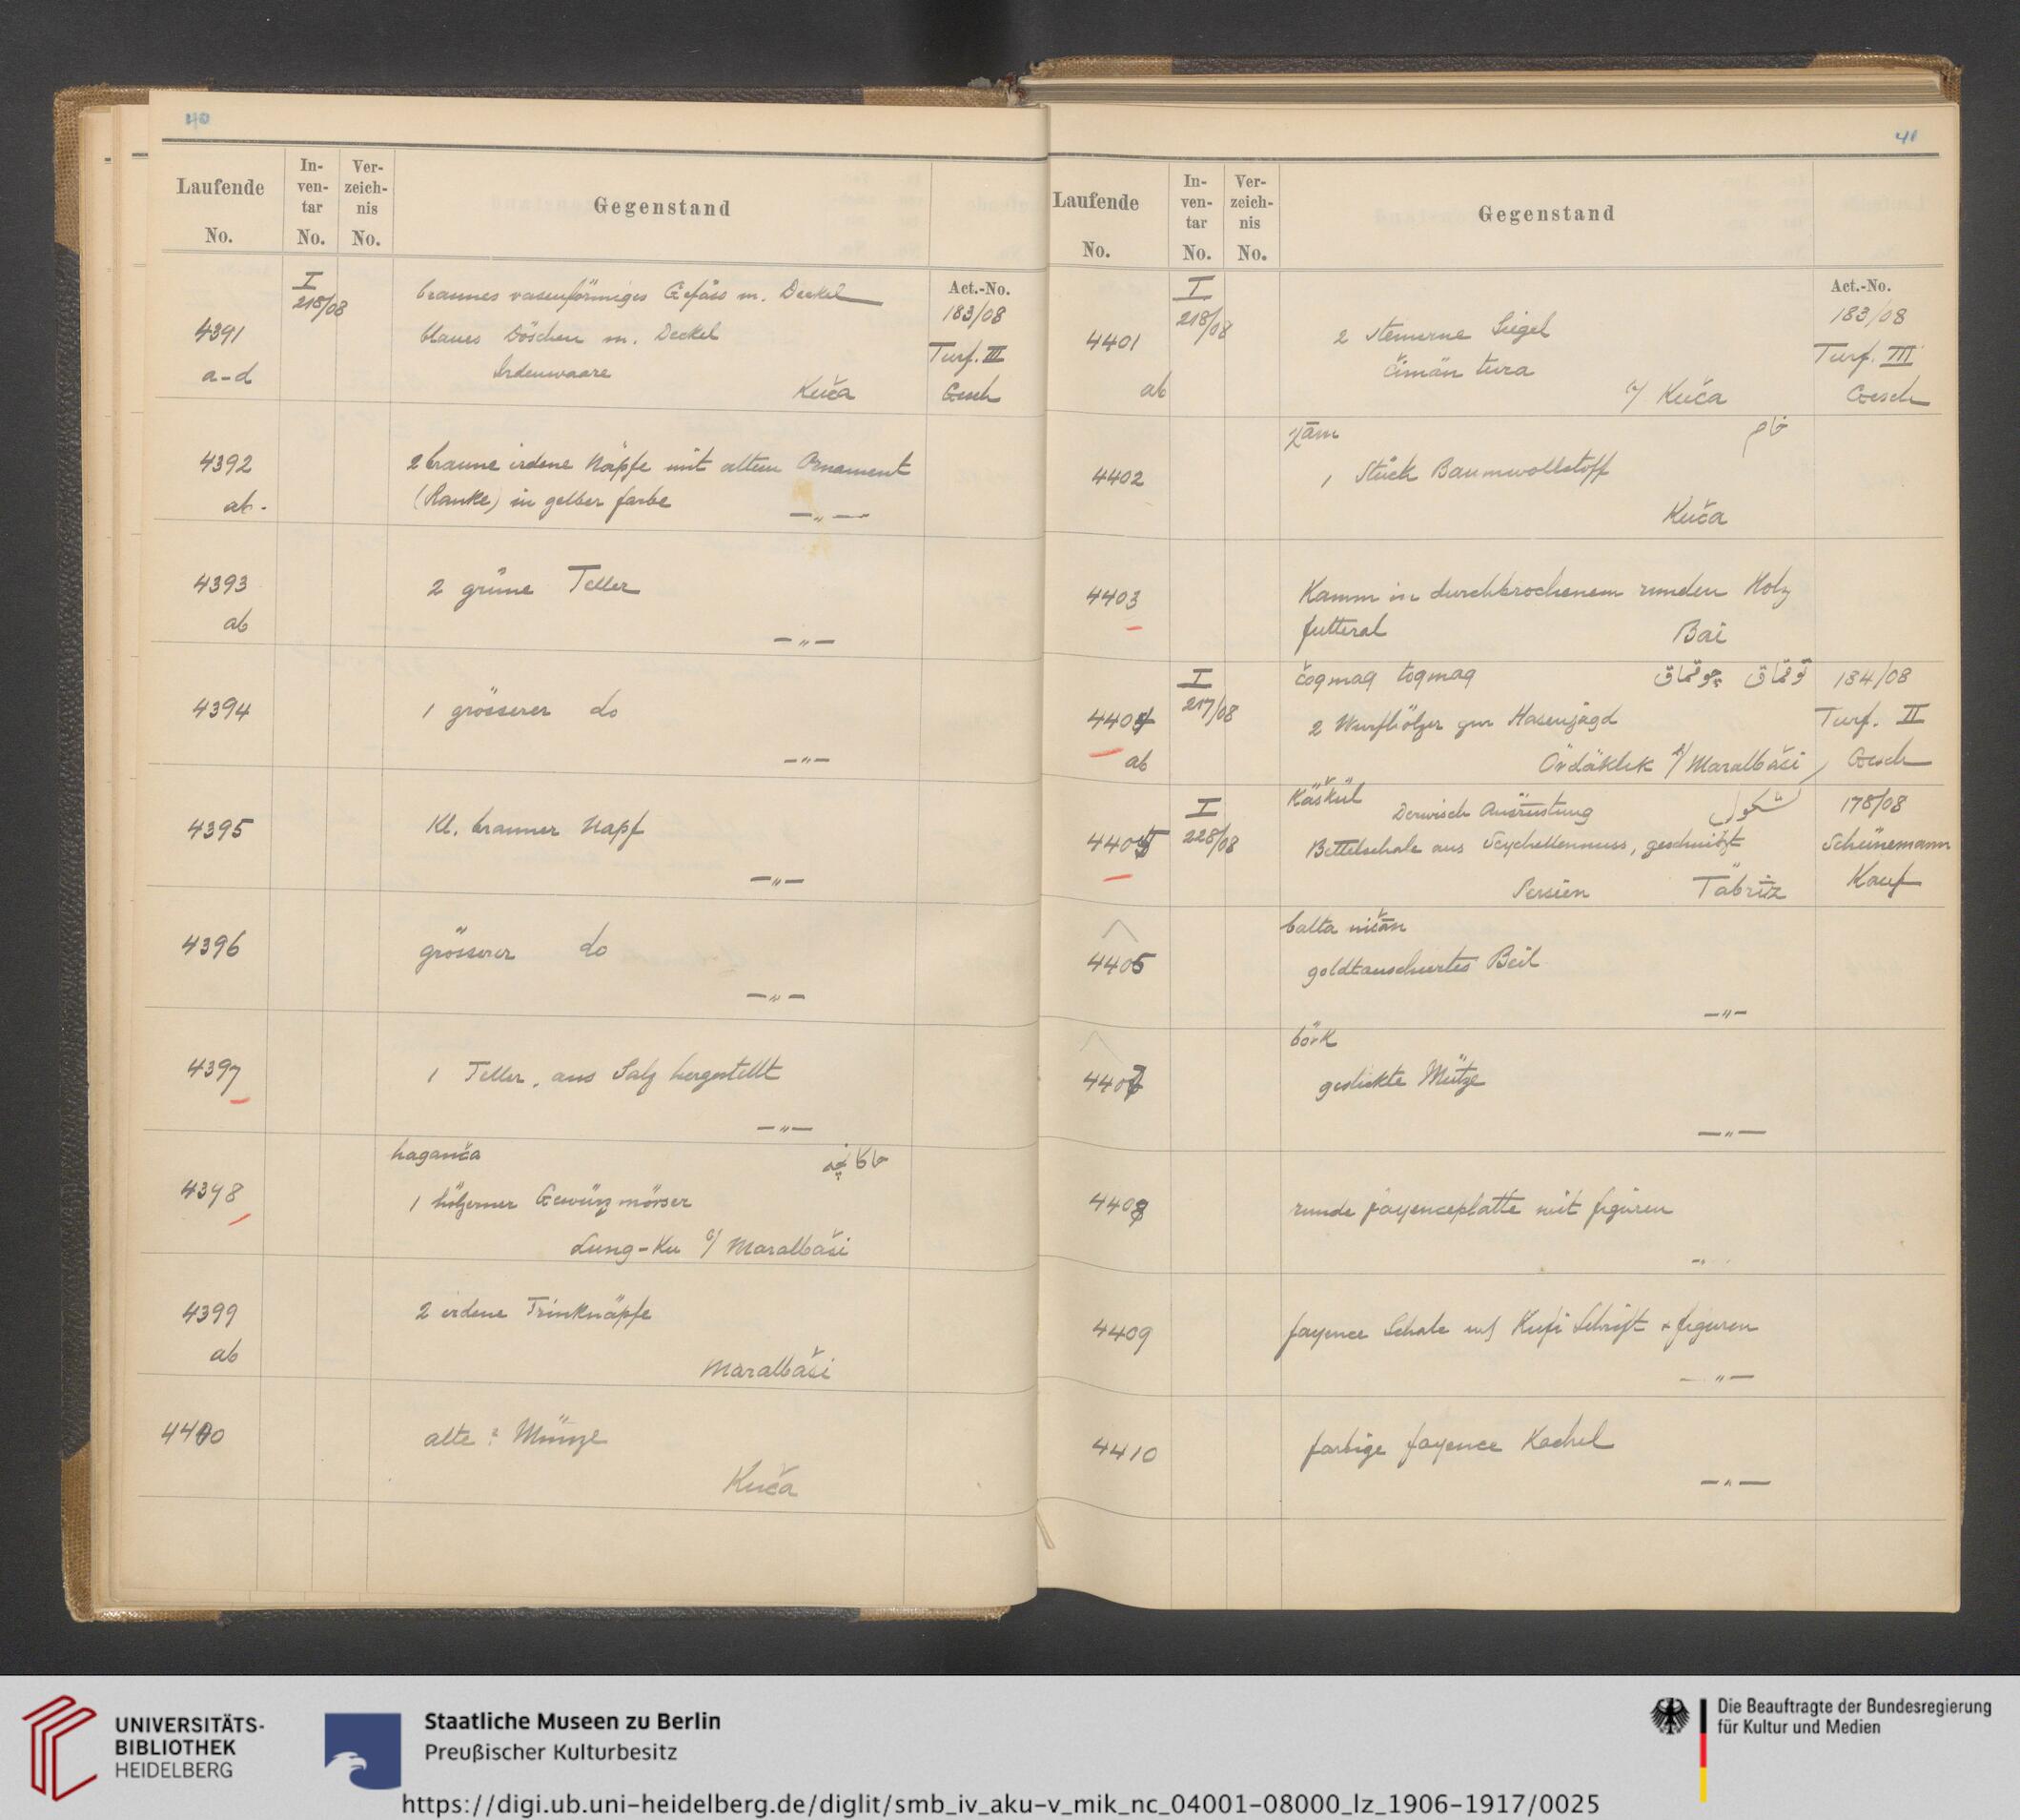 40
Laufende No. In-ven-tar No. Ver-zeich-nis No. Gegenstand
I 218/08 braunes vasenförmiges Gefäss m. Deckel Act.-No.
183/08
4391 blaues Döschen m. Deckel Turf. III
a-d Irdenwaare
Kuča Gesch
4392 2 braune irdene Näpfe mit altem Ornament
ab. (Ranke) in gelber farbe — „ —
4393 2 grüne Teller
ab — „ —
4394 1 grösserer do
— „ —
4395 Kl. brauner Napf
— „ —
4396 grösserer do
— „ —
4397 1 Teller, aus Salz hergestellt
— „ —
haganča
4398 1 hölzerner Gewürzmörser
Lung-Ku b/ Maralbaši
4399 2 irdene Trinknäpfe
ab Maralbaši
4400 alte ? Münze
Kuča
41
Laufende No. In-ven-tar No. Ver-zeich-nis No. Gegenstand
I 218/08 Act.-No.
183/08
4401 2 steinerne Siegel Turf. III
ab čimän tura
b/ Kuča Gesch
χām خام
4402 1 Stück Baumwollstoff
Kuča
4403 Kamm in durchbrochenem runden Holz
futteral Bai
I 217/08 čogmaq togmaq توقماق چوقماق 184/08
4404 2 Wurfhölzer zur Hasenjagd Turf. II
ab Ördäklik b/ Maralbaši, Gesch
I 228/08 Käškül Derwisch Ausrüstung 178/08
4405 Bettelschale aus Seychellennuss, geschnitzt Schünemann
Persien Täbrīz Kauf
balta nišān
4406 goldtauschiertes Beil
— „ —
börk
4407 gestickte Mütze
— „ —
4408 runde fayenceplatte mit figuren
— „
4409 fayence Schale mit Kufi Schrift + figuren
— „ —
4410 farbige fayence Kachel
— „ —
UNIVERSITÄTS-
BIBLIOTHEK
HEIDELBERG
Staatliche Museen zu Berlin
Preußischer Kulturbesitz
Die Beauftragte der Bundesregierung
für Kultur und Medien
https://digi.ub.uni-heidelberg.de/diglit/smb_iv_aku-v_mik_nc_04001-08000_lz_1906-1917/0025